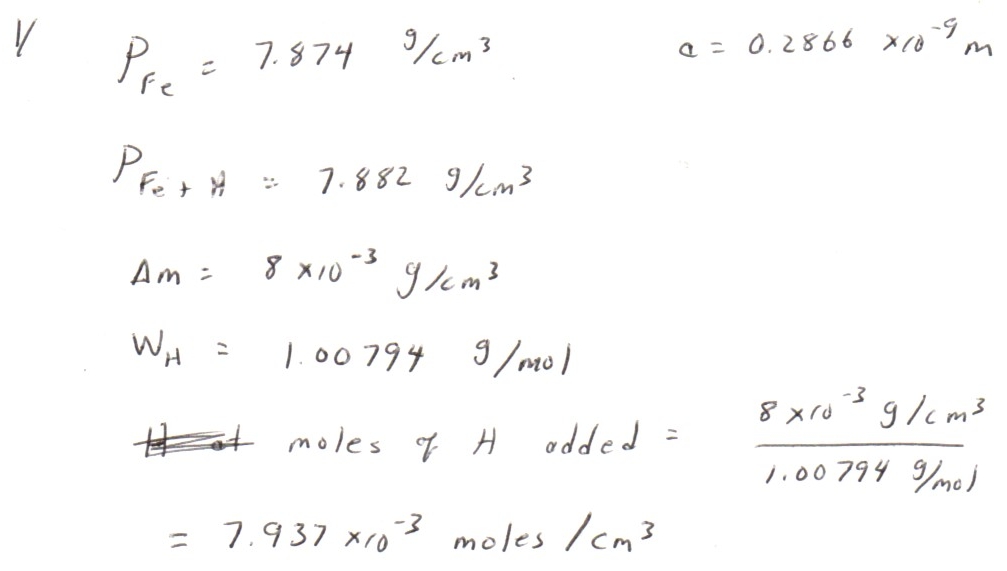 1/ ρFe = 7.874 g/cm³ a = 0.2866 ×10⁻⁹ m
ρFe + H = 7.882 g/cm³
Δm = 8 ×10⁻³ g/cm³
WH = 1.00794 g/mol
moles of H added = 8 ×10⁻³ g/cm³ / 1.00794 g/mol
= 7.937 ×10⁻³ moles /cm³